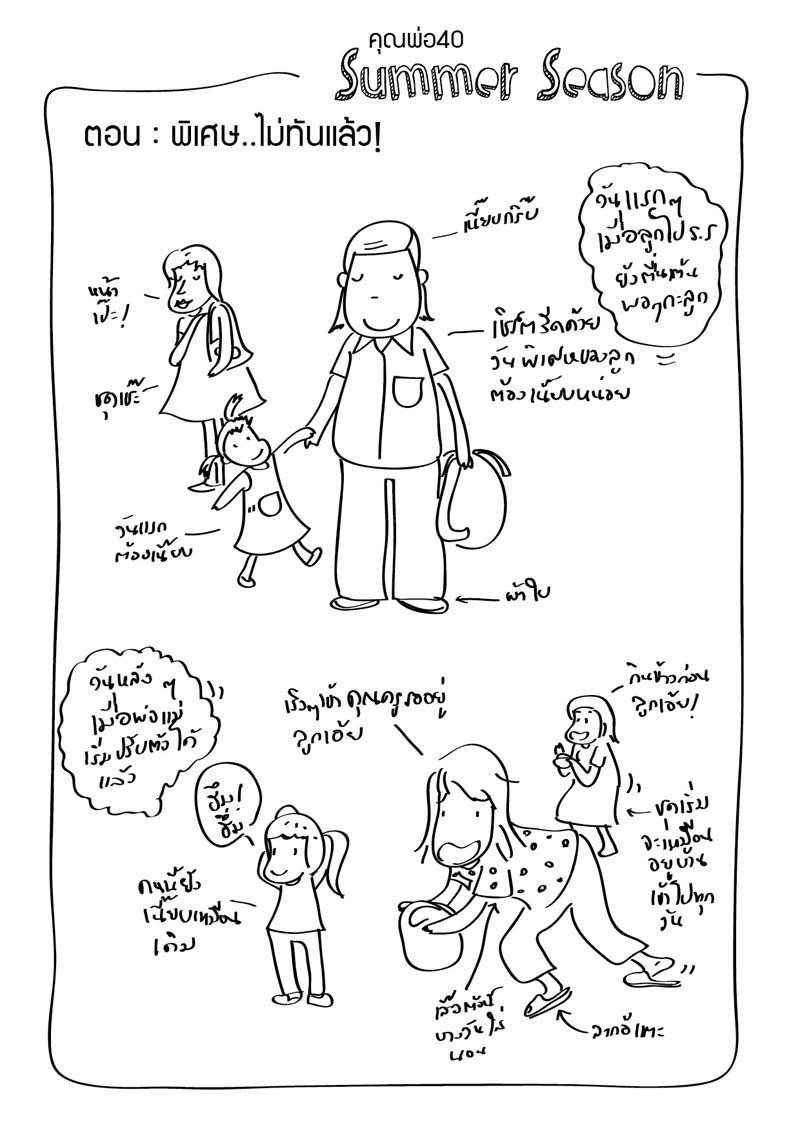 คุณพ่อ40
Summer Season
ตอน : พิเศษ..ไม่ทันแล้ว!
วันแรกๆ
เมื่อลูกไป ร.ร
ยังตื่นเต้น
พอๆกะลูก
เนี้ยบกริ๊บ
หน้า
เป๊ะ!
เชิ้ตรีดด้วย
วันพิเศษของลูก
ต้องเนี้ยบหน่อย
ชุดเป๊ะ
วันแรก
ต้องเนี้ยบ
ผ้าใบ
วันหลังๆ
เมื่อพ่อแม่
เริ่มปรับตัวได้
แล้ว
เร็วๆเข้า คุณครูรออยู่
ลูกเอ้ย
กินข้าวก่อน
ลูกเอ้ย!
ฮึ่ม!
ฮึ่ม
คนนี้ยัง
เนี้ยบเหมือน
เดิม
ชุดเริ่ม
จะเหมือน
อยู่บ้าน
เข้าไปทุก
วัน
เสื้อตัวนี้
บางวันใส่
นอน
ลากอีแตะ